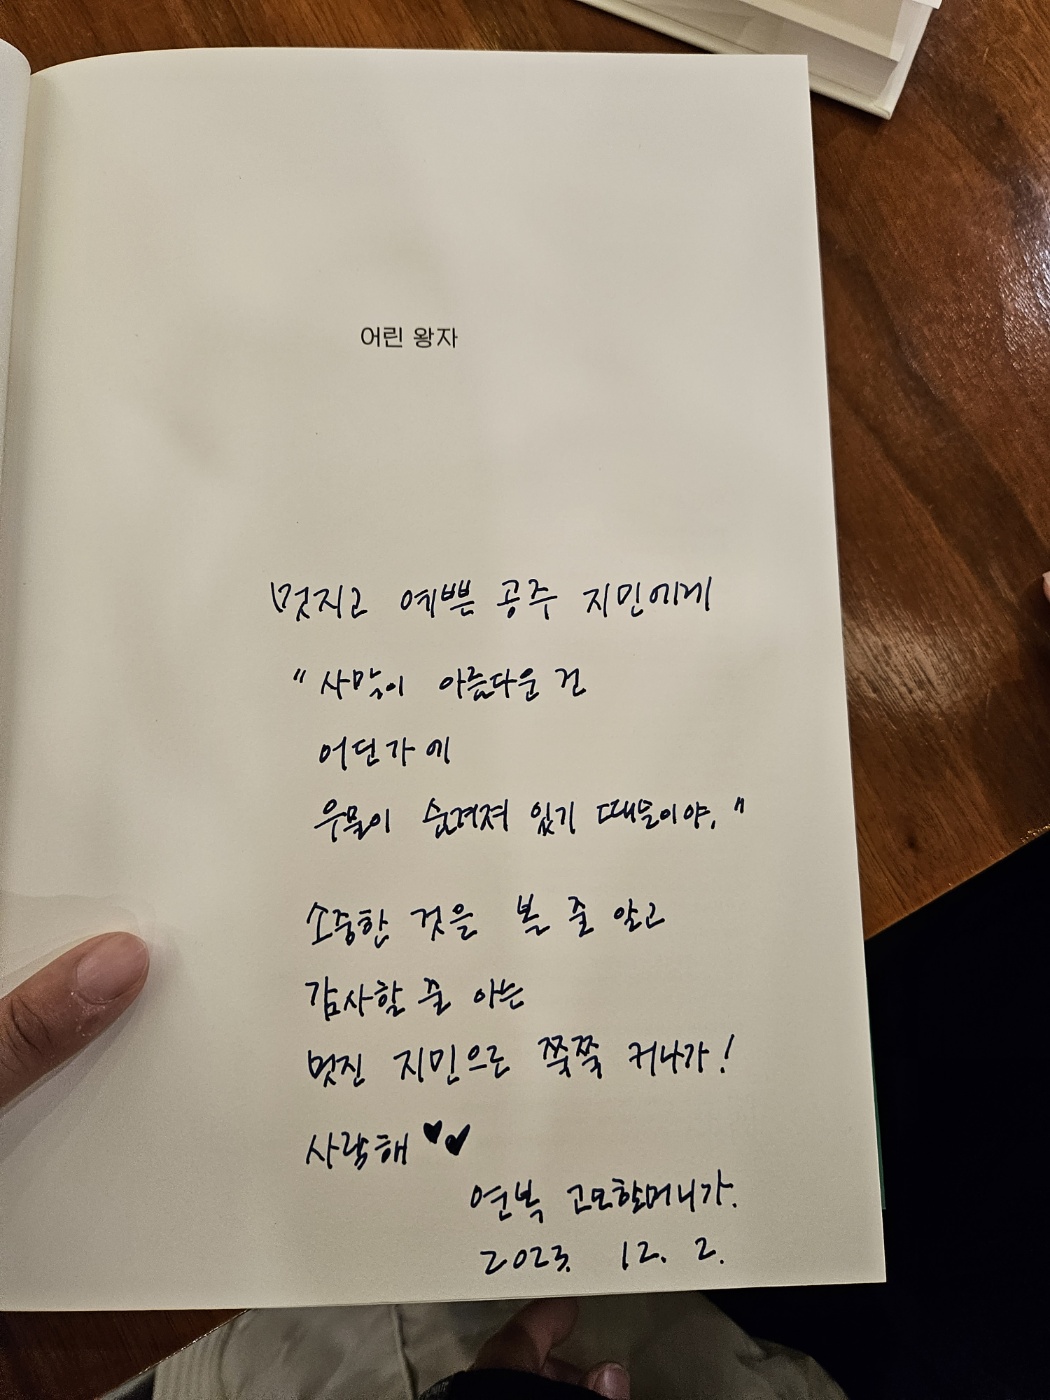 어린 왕자
멋지고 예쁜 공주 지민에게
" 사막이 아름다운 건
어딘가에
우물이 숨겨져 있기 때문이야. "
소중한 것을 볼 줄 알고
감사할 줄 아는
멋진 지민으로 쭉쭉 커나가!
사랑해 ♥♥
연복 고모할머니가.
2023. 12. 2.